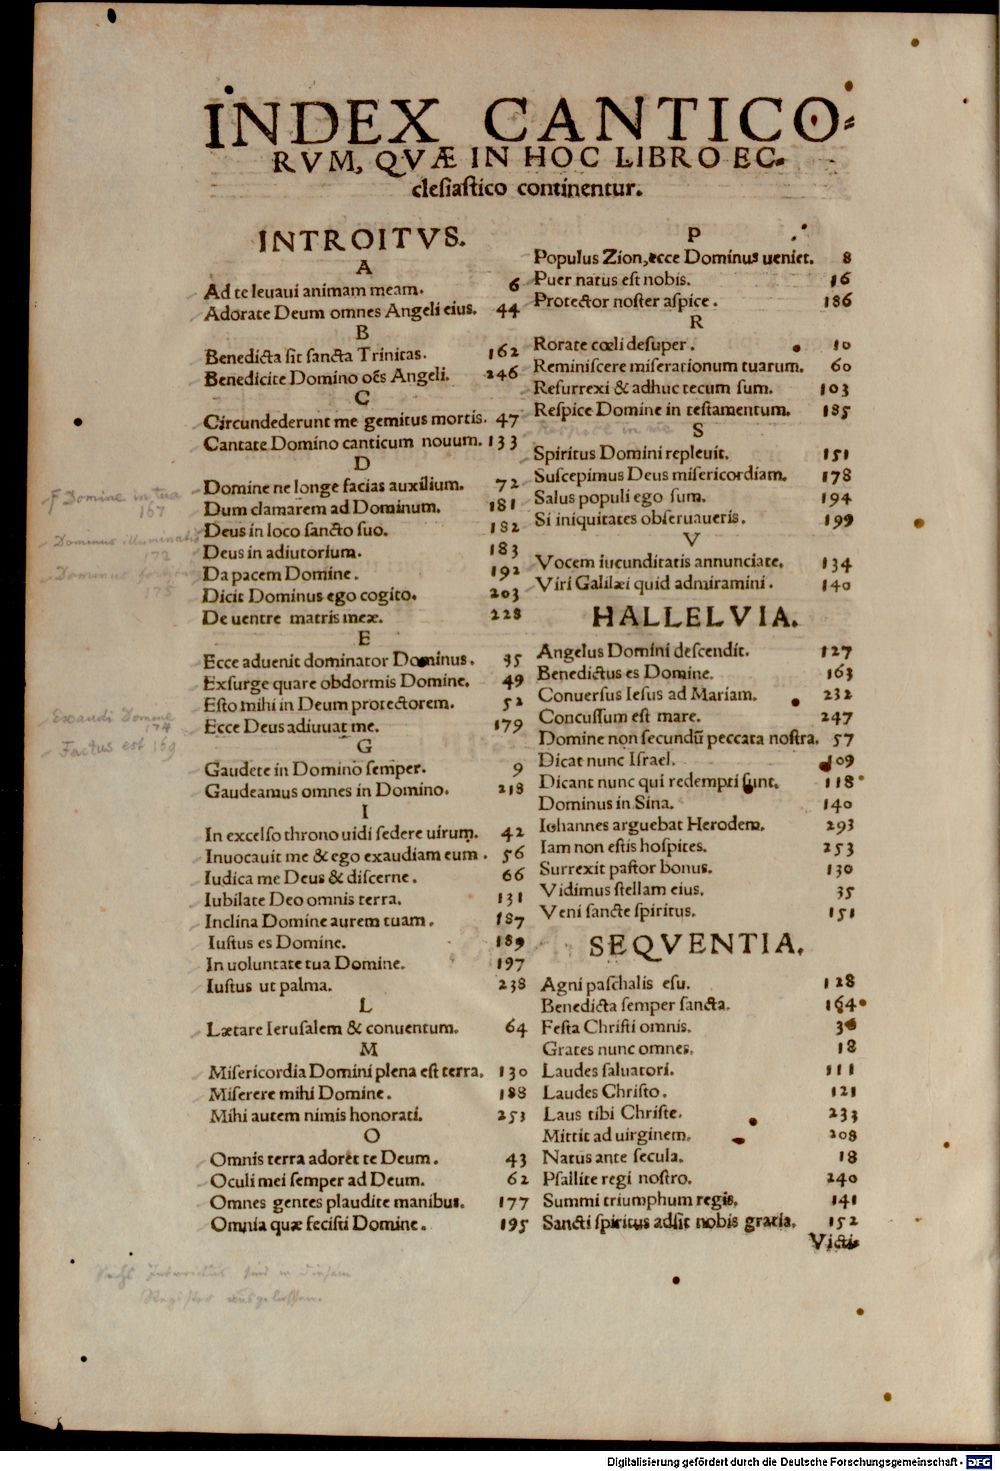 INDEX CANTICO-
RVM, QVÆ IN HOC LIBRO EC-
clesiastico continentur.
INTROITVS.
A
Ad te leuaui animam meam. 6
Adorate Deum omnes Angeli eius. 44
B
Benedicta sit sancta Trinitas. 162
Benedicite Domino oẽs Angeli. 246
C
Circundederunt me gemitus mortis. 47
Cantate Domino canticum nouum. 133
D
Domine ne longe facias auxilium. 72
Dum clamarem ad Dominum. 181
Deus in loco sancto suo. 182
Deus in adiutorium. 183
Da pacem Domine. 192
Dicit Dominus ego cogito. 203
De uentre matris meæ. 228
E
Ecce aduenit dominator Dominus. 35
Exsurge quare obdormis Domine. 49
Esto mihi in Deum protectorem. 52
Ecce Deus adiuuat me. 179
G
Gaudete in Domino semper. 9
Gaudeamus omnes in Domino. 218
I
In excelso throno uidi sedere uirum. 42
Inuocauit me & ego exaudiam eum. 56
Iudica me Deus & discerne. 66
Iubilate Deo omnis terra. 131
Inclina Domine aurem tuam. 187
Iustus es Domine. 189
In uoluntate tua Domine. 197
Iustus ut palma. 238
L
Lætare Ierusalem & conuentum. 64
M
Misericordia Domini plena est terra. 130
Miserere mihi Domine. 188
Mihi autem nimis honorati. 253
O
Omnis terra adoret te Deum. 43
Oculi mei semper ad Deum. 62
Omnes gentes plaudite manibus. 177
Omnia quæ fecisti Domine. 195
F Domine in tua
167
Dominus illuminatio
172
Dominus fortitudo
175
Exaudi Domine
174
Factus est 169
Sechs Introitus sind in diesem
Register ausgelassen.
P
Populus Zion, ecce Dominus ueniet. 8
Puer natus est nobis. 16
Protector noster aspice. 186
R
Rorate cœli desuper. 10
Reminiscere miserationum tuarum. 60
Resurrexi & adhuc tecum sum. 103
Respice Domine in testamentum. 185
Respice in me
S
Spiritus Domini repleuit. 151
Suscepimus Deus misericordiam. 178
Salus populi ego sum. 194
Si iniquitates obseruaueris. 199
V
Vocem iucunditatis annunciate. 134
Viri Galilæi quid admiramini. 140
HALLELVIA.
Angelus Domini descendit. 127
Benedictus es Domine. 163
Conuersus Iesus ad Mariam. 232
Concussum est mare. 247
Domine non secundũ peccata nostra. 57
Dicat nunc Israel. 109
Dicant nunc qui redempti sunt. 118
Dominus in Sina. 140
Iohannes arguebat Herodem. 293
Iam non estis hospites. 253
Surrexit pastor bonus. 130
Vidimus stellam eius. 35
Veni sancte spiritus. 151
SEQVENTIA.
Agni paschalis esu. 128
Benedicta semper sancta. 164
Festa Christi omnis. 36
Grates nunc omnes. 18
Laudes saluatori. 111
Laudes Christo. 121
Laus tibi Christe. 233
Mittit ad uirginem. 208
Natus ante secula. 18
Psallite regi nostro. 240
Summi triumphum regis. 141
Sancti spiritus adsit nobis gratia. 152
Victi-
Digitalisierung gefördert durch die Deutsche Forschungsgemeinschaft - DFG